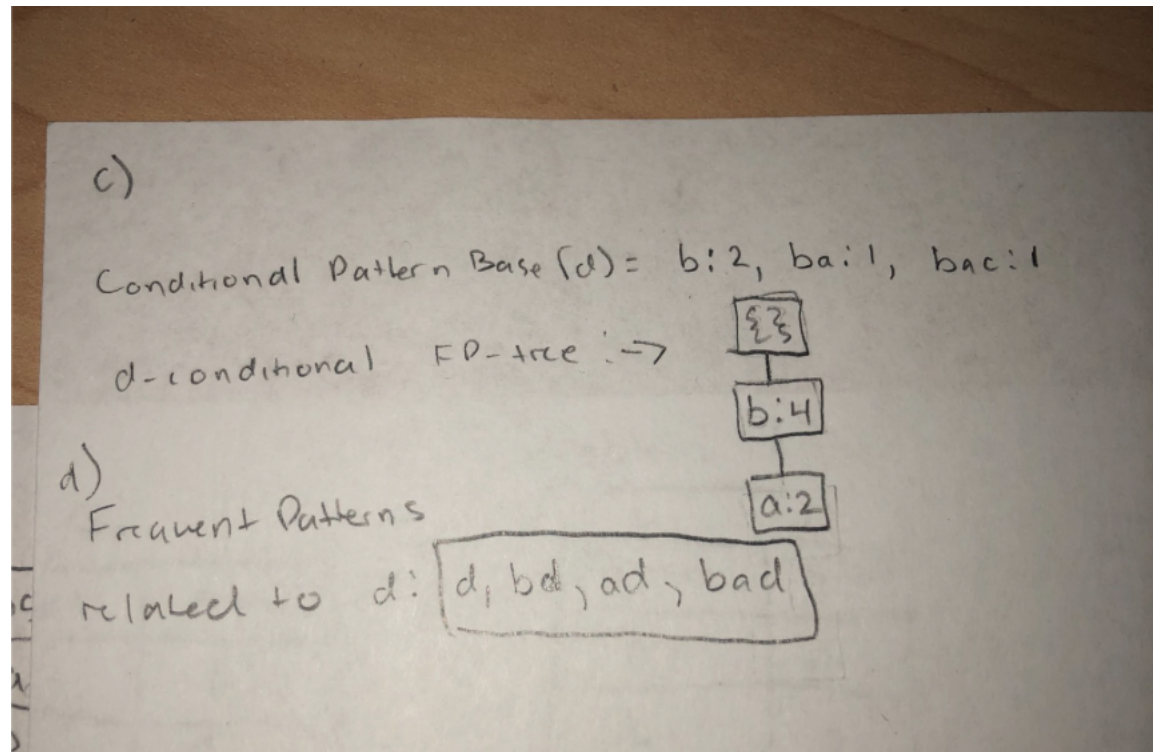 c)
Conditional Pattern Base (d) = b:2, ba:1, bac:1
d-conditional FP-tree :->
{}
b:4
a:2
d)
Frequent Patterns
related to d: d, bd, ad, bad